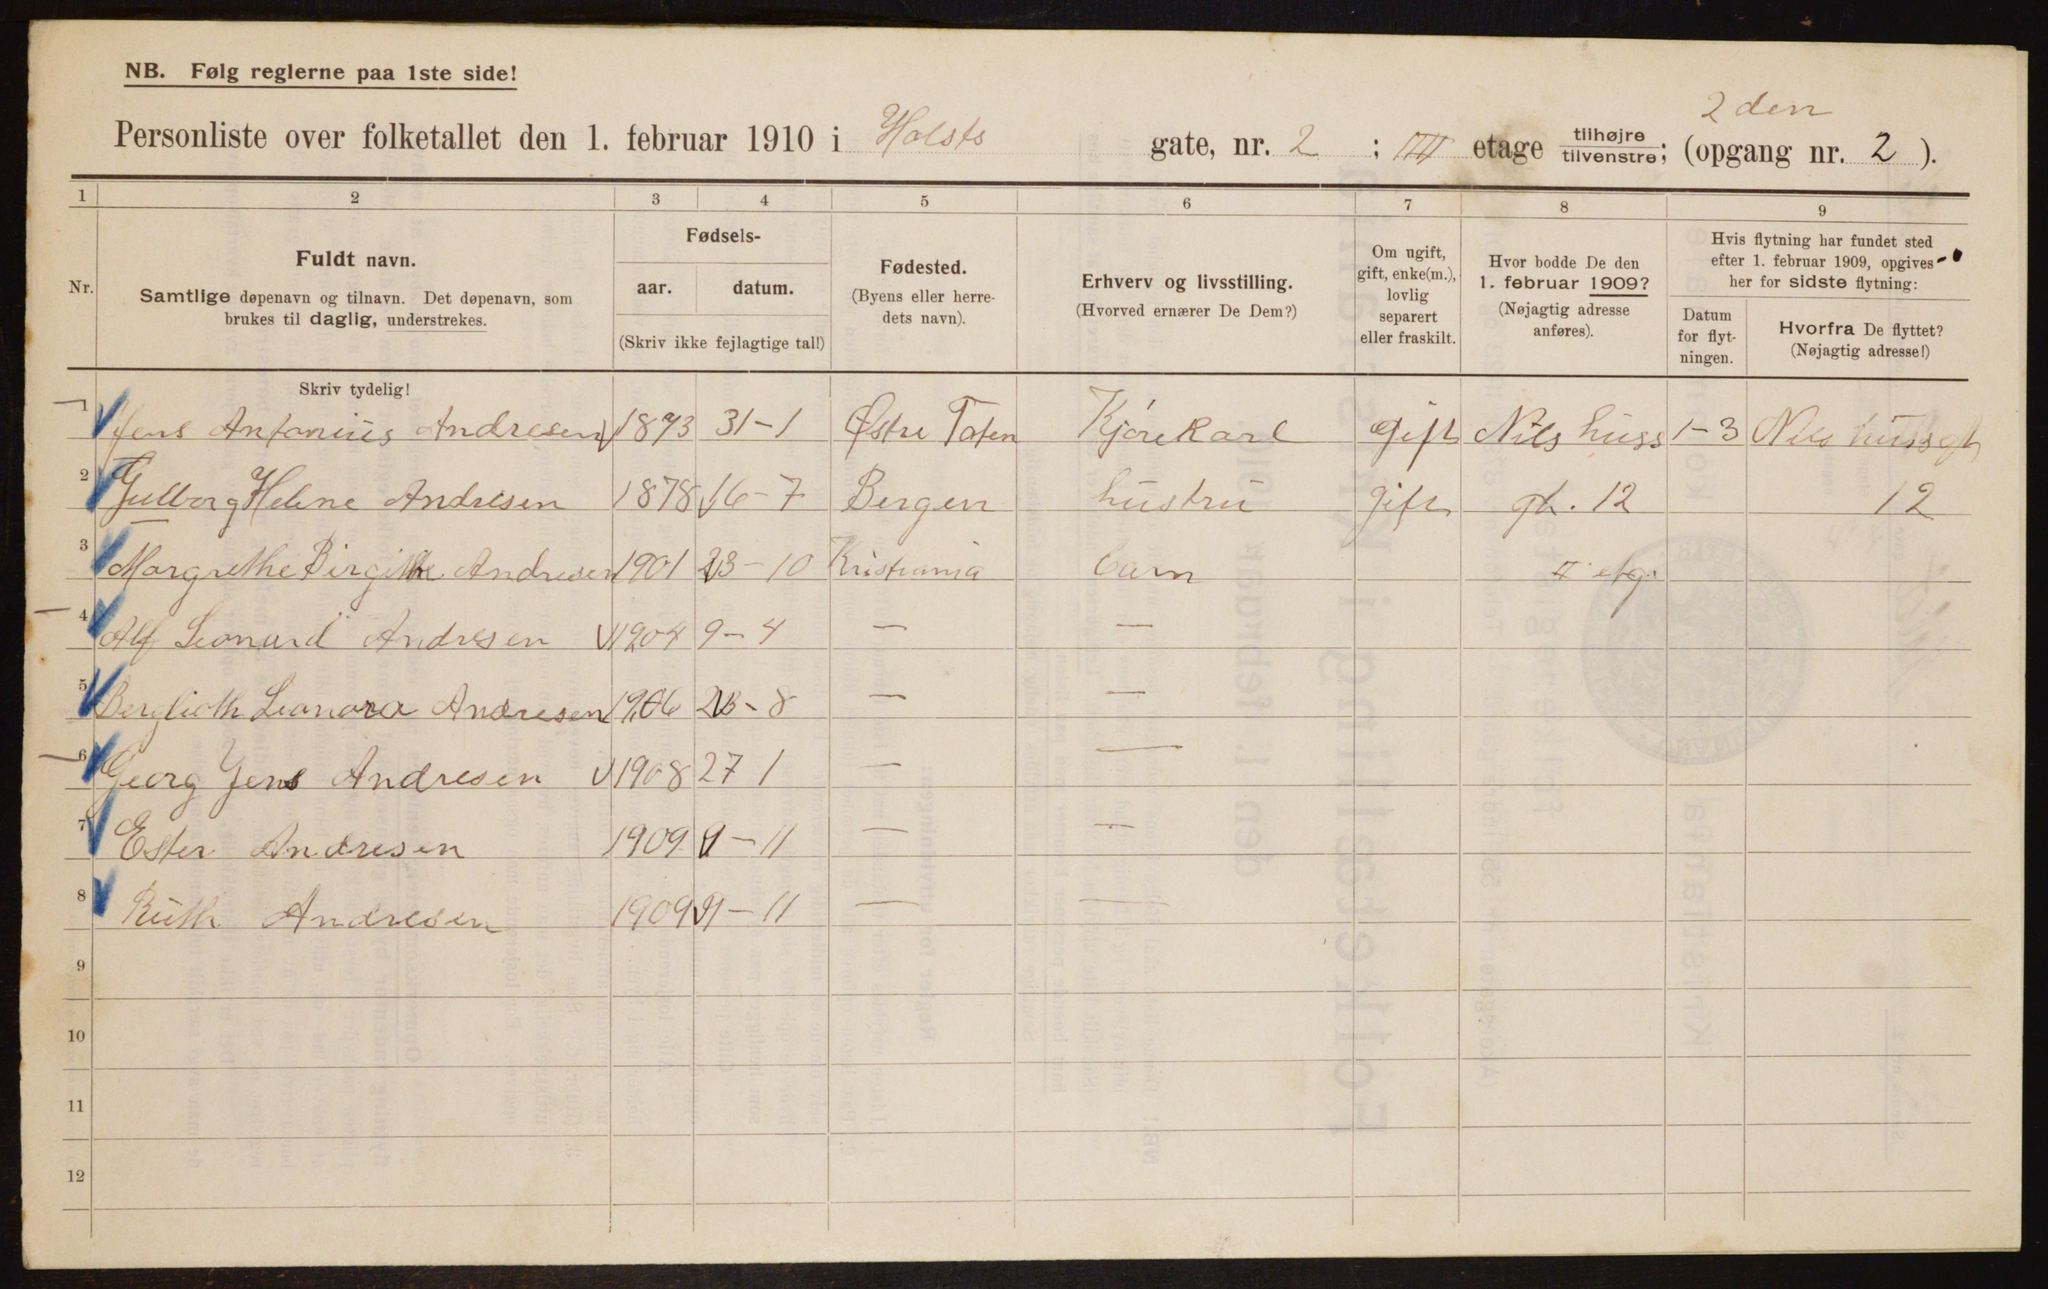 NB. Følg reglerne paa 1ste side!
2 den
Personliste over folketallet den 1. februar 1910 i Holsts gate, nr. 2 ; III etage tilhøjre/tilvenstre; (opgang nr. 2 ).
1 2 3 4 5 6 7 8 9
Nr.
Fuldt navn.
Samtlige døpenavn og tilnavn. Det døpenavn, som
brukes til daglig, understrekes.
Fødsels-
aar. datum.
(Skriv ikke fejlagtige tal!)
Fødested.
(Byens eller herre-
dets navn).
Erhverv og livsstilling.
(Hvorved ernærer De Dem?)
Om ugift,
gift, enke(m.),
lovlig
separert
eller fraskilt.
Hvor bodde De den
1. februar 1909?
(Nøjagtig adresse
anføres).
Hvis flytning har fundet sted
efter 1. februar 1909, opgives
her for sidste flytning:
Datum
for flyt-
ningen.
Hvorfra De flyttet?
(Nøjagtig adresse!)
Skriv tydelig!
1 Jens Antonius Andresen 1873 31-1 Østre Toten Kjørekarl gift Nils huss 1-3 Nils huss gt
2 Julborg Helene Andresen 1878 16-7 Bergen hustru gift gt. 12 12
3 Margrethe Birgithe Andresen 1901 23-10 Kristiania barn II etg.
4 Alf Leonard Andresen 1904 9-4 — —
5 Berglioth Leonora Andresen 1906 23-8 — —
6 Georg Jens Andresen 1908 27 1 — —
7 Ester Andresen 1909 9-11 — —
8 Ruth Andresen 1909 9-11 — —
9
10
11
12